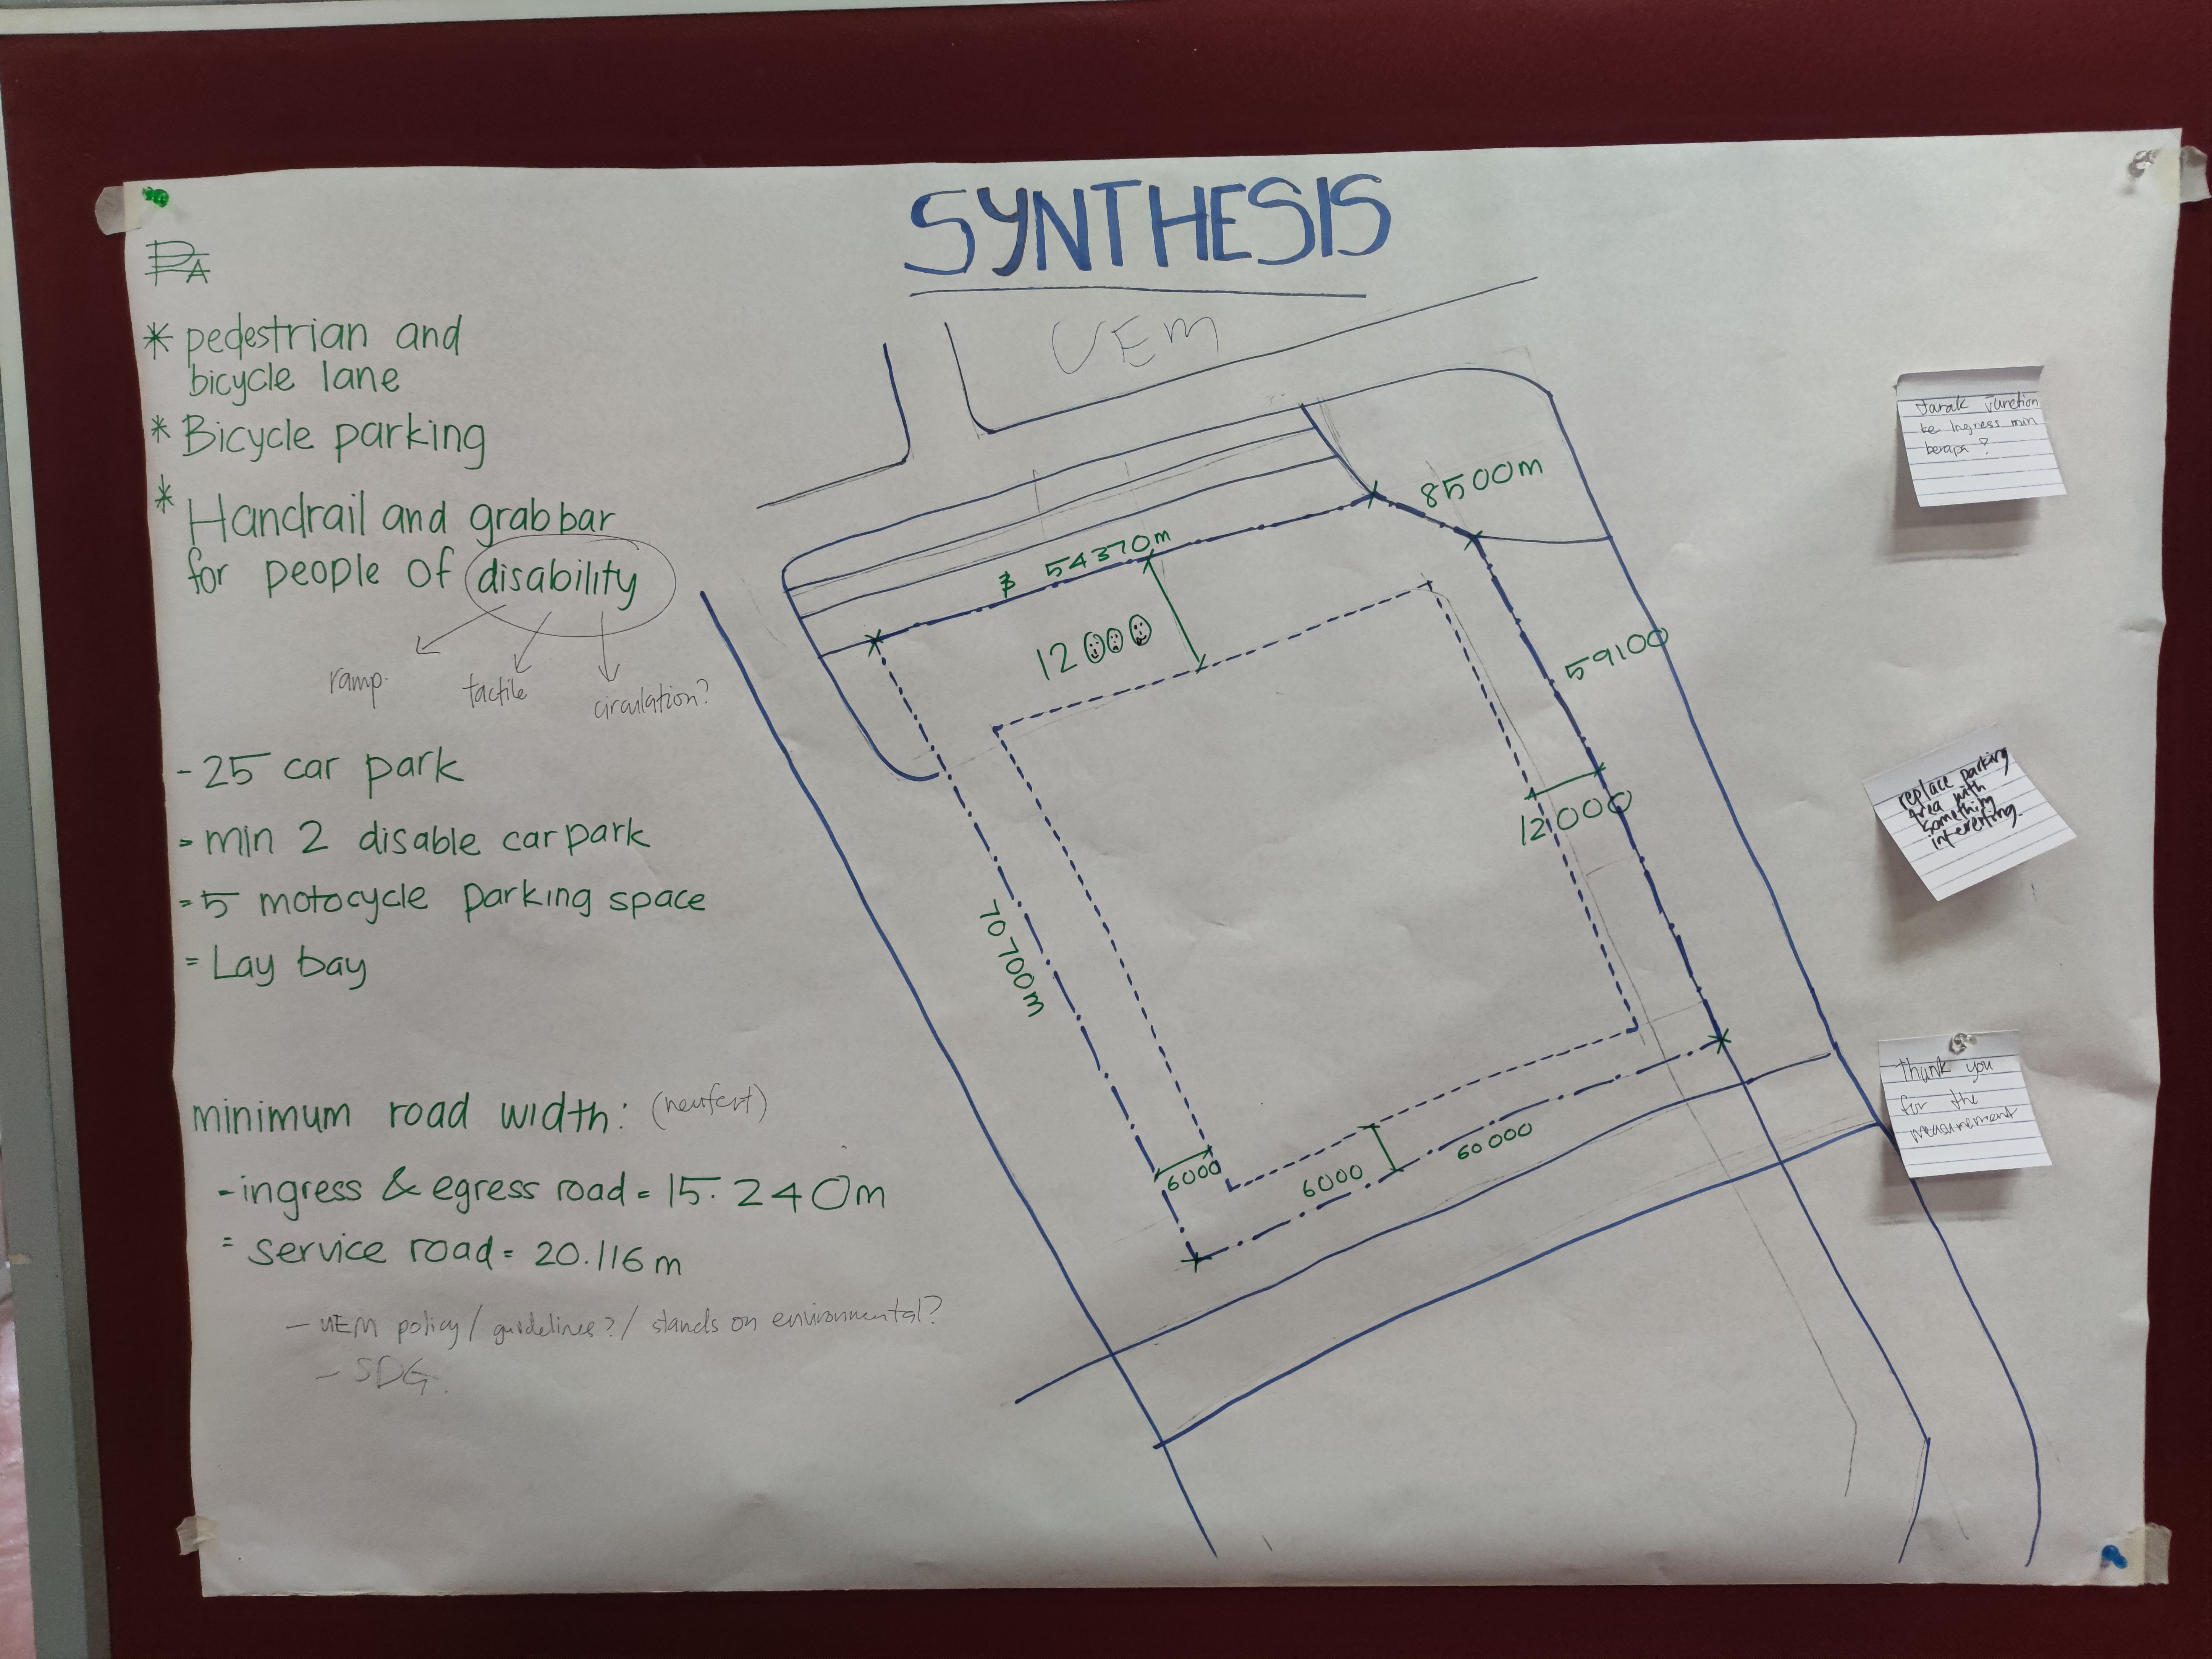 SYNTHESIS
* pedestrian and
bicycle lane
* Bicycle parking
* Handrail and grab bar
for people of disability
ramp.
tactile
circulation?
- 25 car park
- min 2 disable car park
- 5 motocycle parking space
= Lay bay
minimum road width: (neufert)
- ingress & egress road = 15.240m
= service road = 20.116m
- UEM policy / guidelines? / stands on environmental?
- SDG.
UEM
8500m
54370m
12000
59100
12000
70700m
6000
6000
60000
Jarak junction
ke Ingress min
berapa?
replace parking
area with
something
interesting.
Thank you
for the
measurement